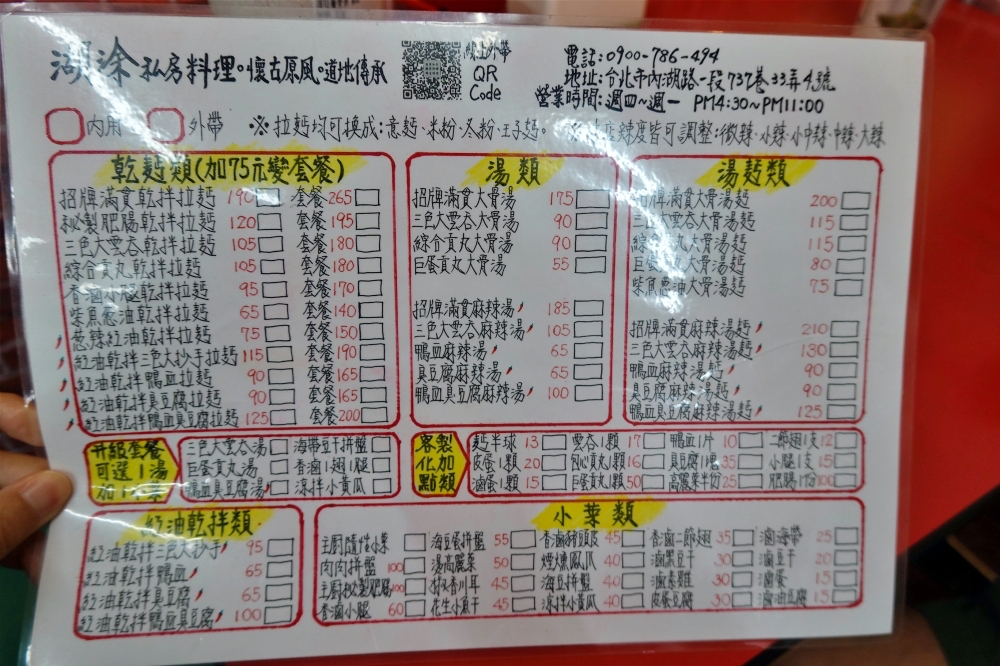 湖涂私房料理。懷古原風。道地傳承
線上外帶
QR
Code
電話:0900-786-494
地址:台北市內湖路一段737巷33弄4號
營業時間:週四~週一 PM4:30~PM11:00
內用 外帶 ※拉麵均可換成:意麵·米粉·冬粉·王子麵。
辣度皆可調整:微辣·小辣·小中辣·中辣·大辣
乾麵類(加75元變套餐)
招牌滿貫乾拌拉麵 190 套餐265
秘製肥腸乾拌拉麵 120 套餐195
三色大雲吞乾拌拉麵 105 套餐180
綜合貢丸乾拌拉麵 105 套餐180
香滷小腿乾拌拉麵 95 套餐170
柴魚蔥油乾拌拉麵 65 套餐140
蔥辣紅油乾拌拉麵 75 套餐150
紅油乾拌三色大抄手拉麵 115 套餐190
紅油乾拌鴨血拉麵 90 套餐165
紅油乾拌臭豆腐拉麵 90 套餐165
紅油乾拌鴨血臭豆腐拉麵 125 套餐200
湯類
招牌滿貫大骨湯 175
三色大雲吞大骨湯 90
綜合貢丸大骨湯 90
巨蛋貢丸大骨湯 55
招牌滿貫麻辣湯 185
三色大雲吞麻辣湯 105
鴨血麻辣湯 65
臭豆腐麻辣湯 65
鴨血臭豆腐麻辣湯 100
湯麵類
招牌滿貫大骨湯麵 200
三色大雲吞大骨湯麵 115
綜合貢丸大骨湯麵 115
巨蛋貢丸大骨湯麵 80
柴魚蔥油大骨湯麵 75
招牌滿貫麻辣湯麵 210
三色大雲吞麻辣湯麵 130
鴨血麻辣湯麵 90
臭豆腐麻辣湯麵 90
鴨血臭豆腐麻辣湯麵 125
升級套餐
可選1湯
加1小菜
三色大雲吞湯 海帶豆干拼盤
巨蛋貢丸湯 香滷1翅1腿
鴨血臭豆腐湯 涼拌小黃瓜
客製
化加
點類
麵半球 13 雲吞1顆 17 鴨血1片 10 二節翅1支 12
皮蛋1顆 20 包心貢丸1顆 16 臭豆腐1塊 35 小腿1支 15
滷蛋1顆 15 巨蛋貢丸1顆 50 高麗菜半份 25 肥腸1份 100
紅油乾拌類
紅油乾拌三色大抄手 95
紅油乾拌鴨血 65
紅油乾拌臭豆腐 65
紅油乾拌鴨血臭豆腐 100
小菜類
主廚隨性小菜 海豆蛋拼盤 55 香滷豬頭皮 45 香滷二節翅 35 滷海帶 25
肉肉拼盤 100 燙高麗菜 50 煙燻鳳爪 40 滷黑豆干 30 滷豆干 20
主廚秘製肥腸 100 椒香川耳 45 海豆拼盤 40 滷素雞 30 滷蛋 15
香滷小腿 60 花生小魚干 45 涼拌小黃瓜 40 皮蛋豆腐 30 滷油豆腐 15